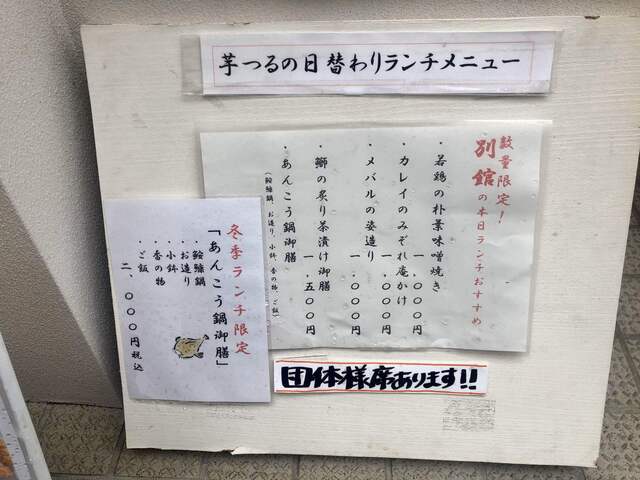 芋つるの日替わりランチメニュー
数量限定!
別館の本日ランチおすすめ
・若鶏の朴葉味噌焼き
一.〇〇〇円
・カレイのみぞれ庵かけ
一.〇〇〇円
・メバルの姿造り
一.〇〇〇円
・鰤の炙り茶漬け御膳
一.五〇〇円
・あんこう鍋御膳
(鮟鱇鍋、お造り、小鉢、香の物、ご飯)
冬季ランチ限定
「あんこう鍋御膳」
・鮟鱇鍋
・お造り
・小鉢
・香の物
・ご飯
二、〇〇〇円税込
団体様席あります!!